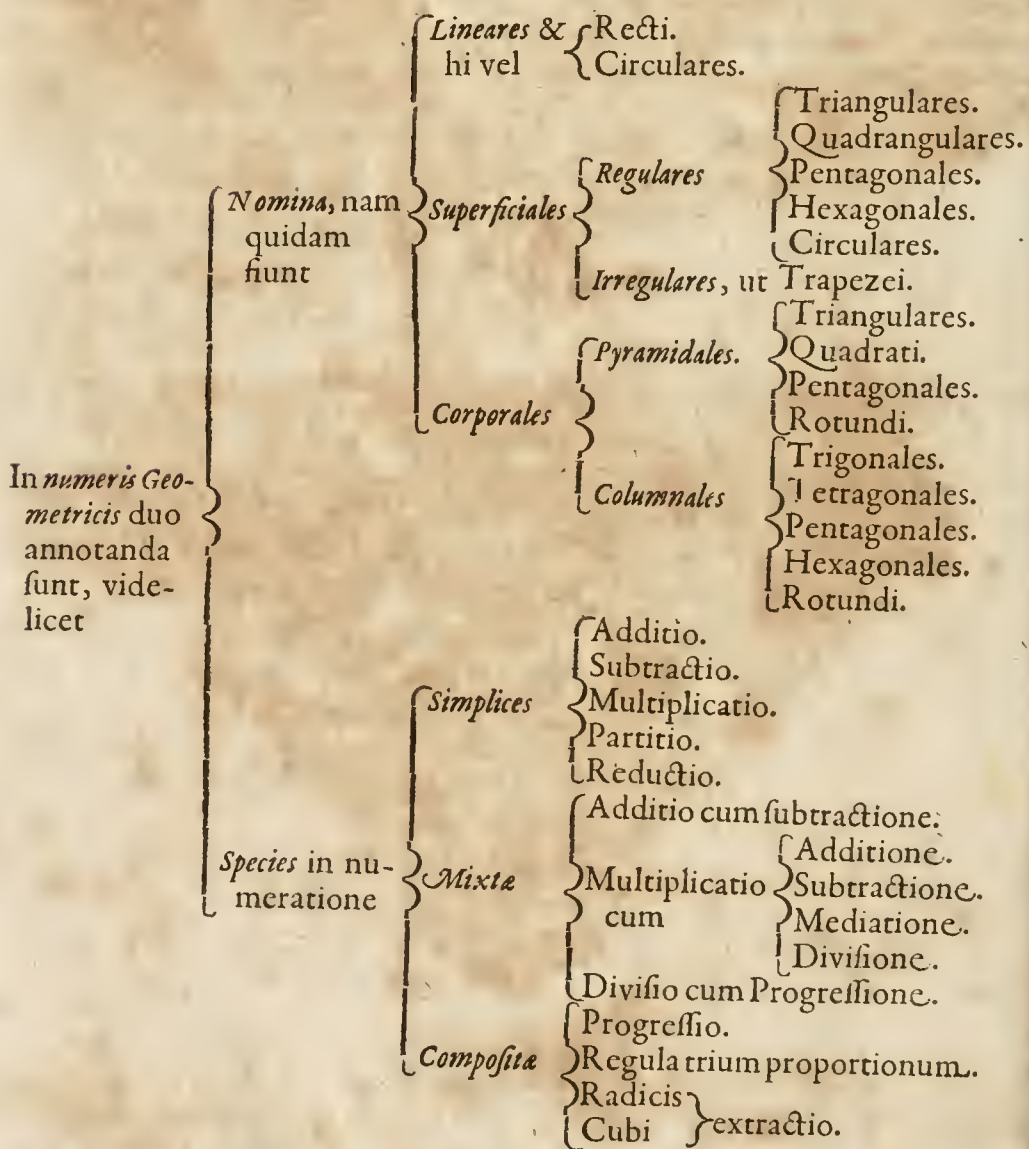 Lineares & hi vel
Recti.
Circulares.
Nomina, nam
quidam
fiunt
Superficiales
Regulares
Triangulares.
Quadrangulares.
Pentagonales.
Hexagonales.
Circulares.
Irregulares, ut Trapezei.
Corporales
Pyramidales.
Triangulares.
Quadrati.
Pentagonales.
Rotundi.
Columnales
Trigonales.
Tetragonales.
Pentagonales.
Hexagonales.
Rotundi.
In numeris Geo-
metricis duo
annotanda
ſunt, vide-
licet
Species in nu-
meratione
Simplices
Additio.
Subtractio.
Multiplicatio.
Partitio.
Reductio.
Mixtæ
Additio cum ſubtractione.
Multiplicatio
cum
Additione.
Subtractione.
Mediatione.
Diviſione.
Diviſio cum Progreſſione.
Compoſitæ
Progreſſio.
Regula trium proportionum.
Radicis
Cubi
extractio.